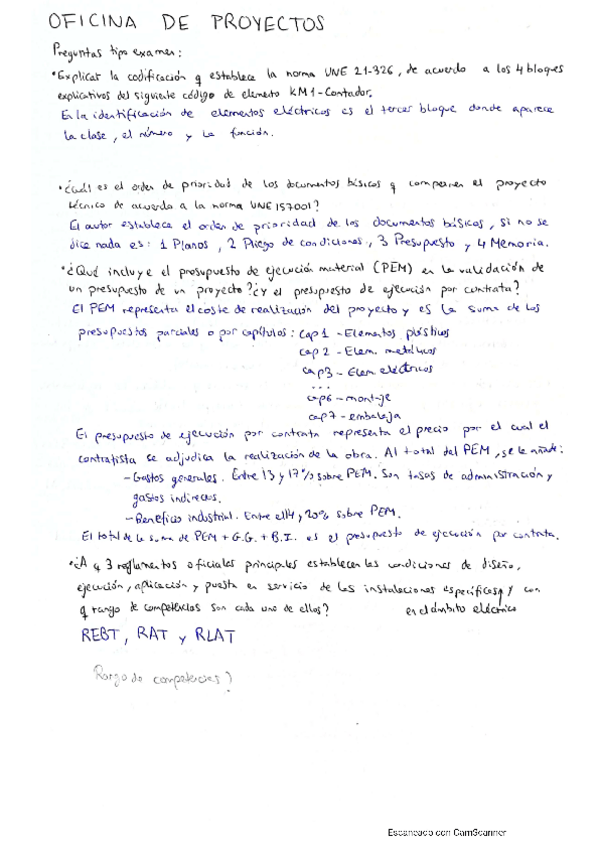 OFICINA DE PROYECTOS
Preguntas tipo examen:
• Explicar la codificación q establece la norma UNE 21-326, de acuerdo a los 4 bloques
explicativos del siguiente código de elemento KM1-Contador.
En la identificación de elementos eléctricos es el tercer bloque donde aparece
la clase, el número y la función.
• ¿Cuál es el orden de prioridad de los documentos básicos q componen el proyecto
técnico de acuerdo a la norma UNE 157001?
El autor establece el orden de prioridad de los documentos básicos, si no se
dice nada es: 1 Planos, 2 Pliego de condiciones, 3 Presupuesto y 4 Memoria.
• ¿Qué incluye el presupuesto de ejecución material (PEM) en la validación de
un presupuesto de un proyecto? ¿Y el presupuesto de ejecución por contrata?
El PEM representa el coste de realización del proyecto y es la suma de los
presupuestos parciales o por capítulos: cap 1 - Elementos plásticos
cap 2 - Elem. metálicos
cap3 - Elem eléctricos
...
cap6 - montaje
cap7 - embalaje
El presupuesto de ejecución por contrata representa el precio por el cual el
contratista se adjudica la realización de la obra. Al total del PEM, se le añade:
- Gastos generales. Entre 13 y 17% sobre PEM. Son tasas de administración y
gastos indirectos.
- Beneficio industrial. Entre el 14 y 20% sobre PEM.
El total de la suma de PEM + G.G. + B.I. es el presupuesto de ejecución por contrata.
• ¿A q 3 reglamentos oficiales principales establecen las condiciones de diseño,
ejecución, aplicación y puesta en servicio de las instalaciones específicas y con
q rango de competencias son cada uno de ellos? en el ámbito eléctrico
REBT, RAT y RLAT
Rango de competencias?
Escaneado con CamScanner